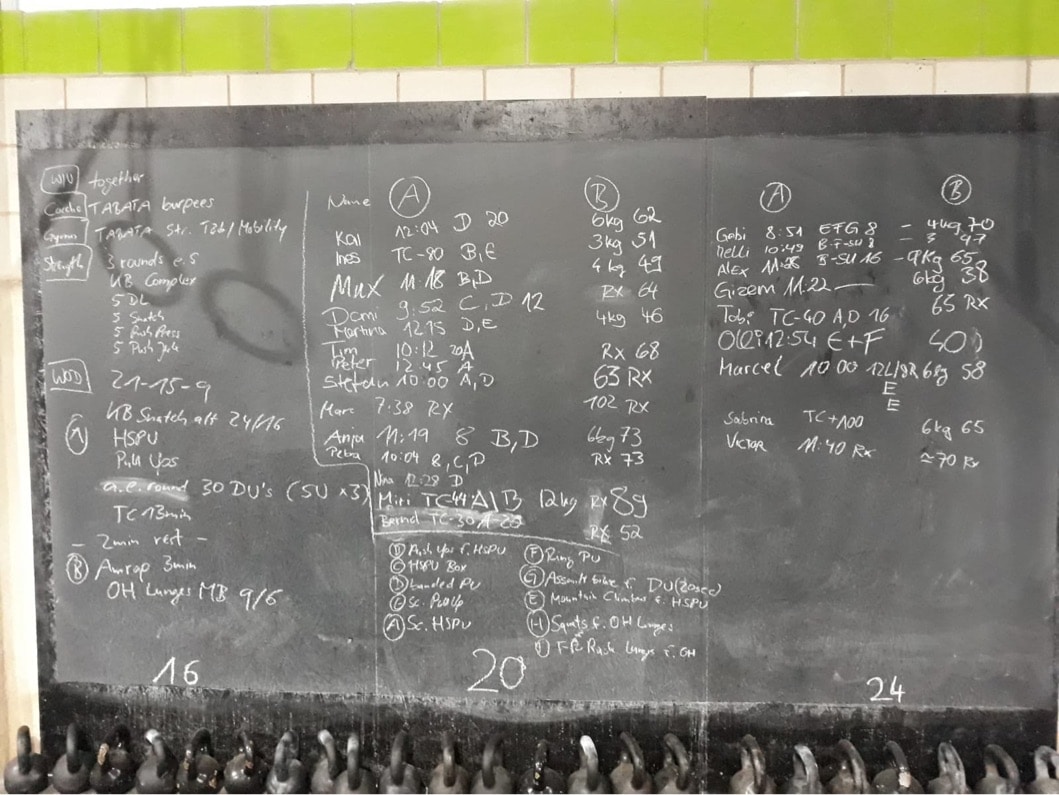 WU together
Cardio TABATA burpees
TABATA Str. Mobility
Strength 3 rounds e.5
KB Complex
5 DL
5 Snatch
5 Push Press
5 Push Jerk
WOD 21-15-9
A KB Snatch alt 24/16
HSPU
Pull Ups
a.e. round 30 DU's (SU x3)
TC 13min
- 2min rest -
B Amrap 3min
OH Lunges MB 9/6
16
Name A B
Kai 12:04 D 20 6kg 62
Ines TC-80 B,E 3kg 51
Max 11:18 B,D 4kg 49
Domi 9:52 C,D 12 RX 64
Martina 12:15 D,E 4kg 46
Tim 10:12 20A RX 68
Peter 12:45 A
Stefan 10:00 A,D 63 RX
Marc 7:38 RX 102 RX
Anja 11:19 8 B,D 6kg 73
Petra 10:04 B,C,D RX 73
Nina 12:28 D
Miri TC44 A/B 12kg RX 89
Bernd TC-30 RX 52
B Push Ups f. HSPU
C HSPU Box
D banded PU
E Sc. PullUp
A Sc. HSPU
F Ring PU
G Assault bike f. DU (20sec)
E Mountain Climber f. HSPU
H Squats f. OH Lunges
I FR Rack Lunges f. OH
20
A B
Gabi 8:51 EFG 8 - 4kg 70
Nelli 10:49 - 3 47
Alex - 9kg 65
Gizem 11.22 6kg 38
Tobi TC-40 A,D 16 65 RX
Olli 12:54 E+F 40
Marcel 10:00 6kg 58
E
E
Sabrina TC+100 6kg 65
Victor 11:40 Rx ≈70 Rx
24